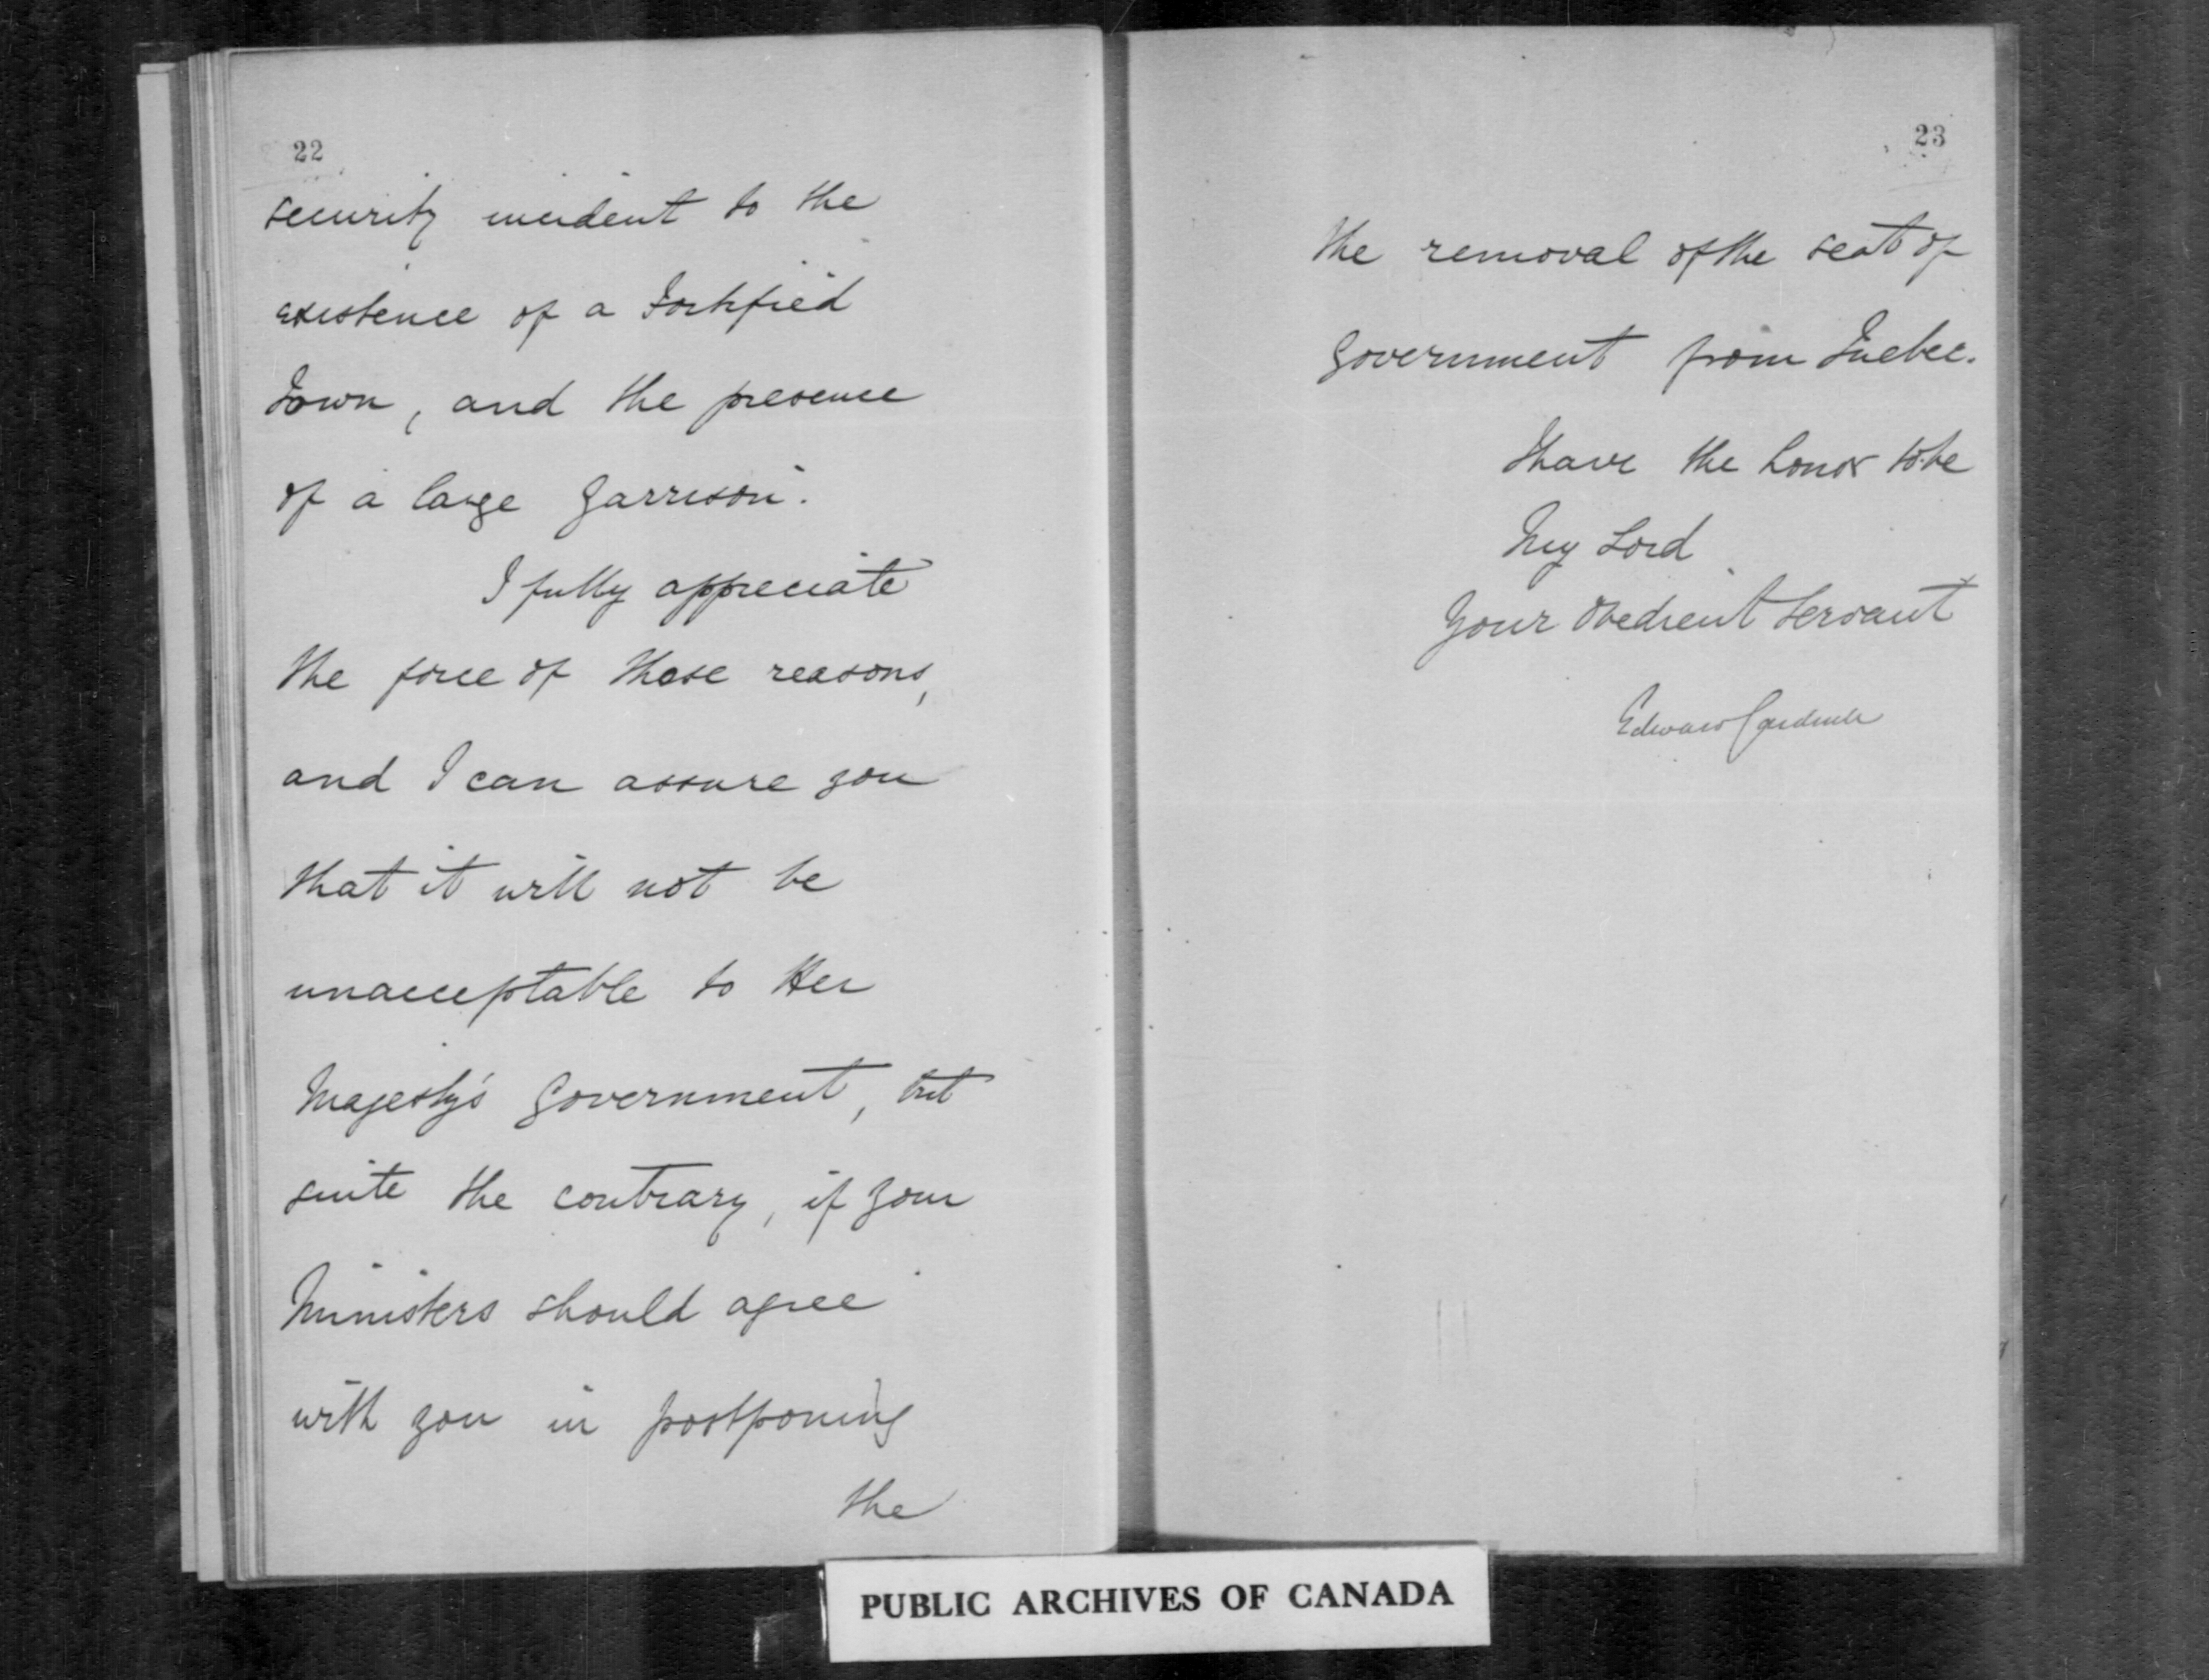 22
security incident to the
existence of a Fortified
Town, and the presence
of a large Garrison.
I fully appreciate
the force of these reasons,
and I can assure you
that it will not be
unacceptable to Her
Majesty's Government, but
quite the contrary, if your
Ministers should agree
with you in postponing
the
23
the removal of the seat of
Government from Quebec.
I have the honor to be
My Lord
Your Obedient Servant
Edward Cardwell
PUBLIC ARCHIVES OF CANADA